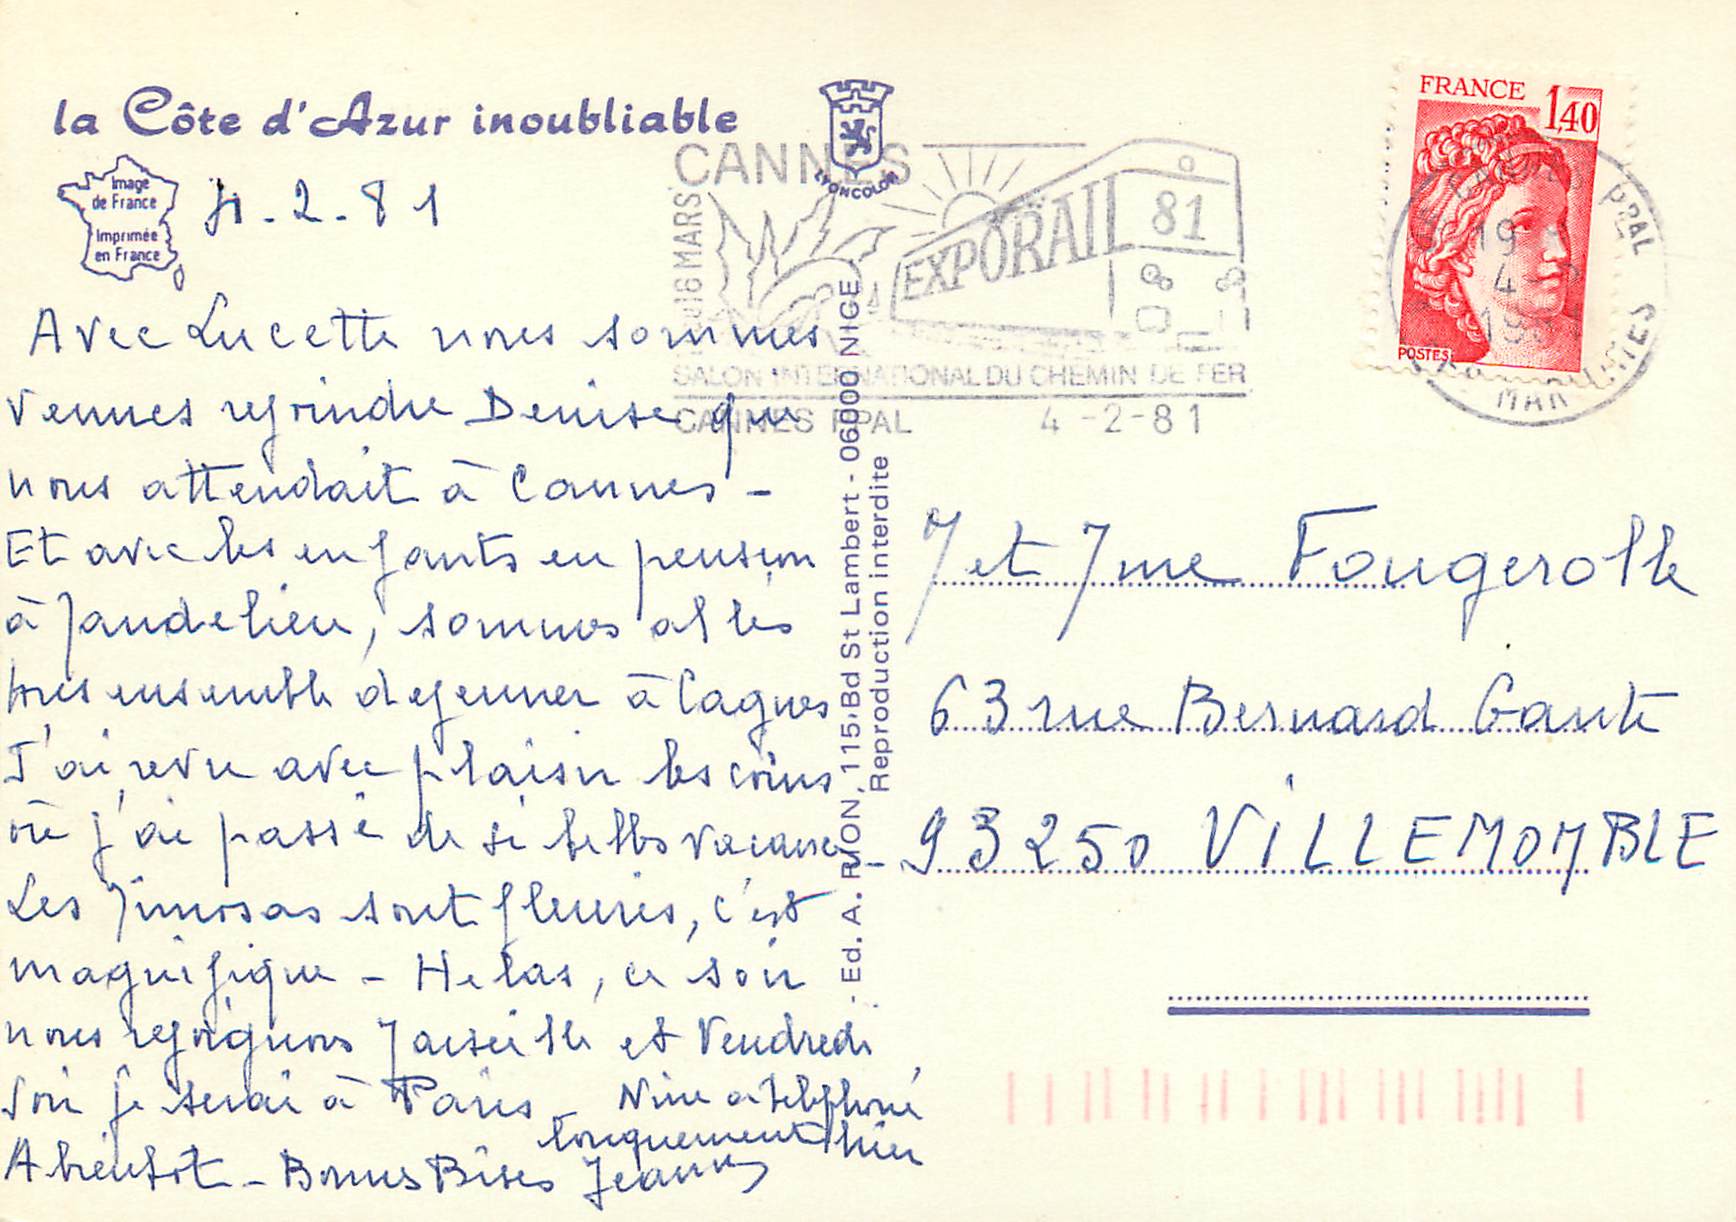 la Côte d'Azur inoubliable
Image
de France
Imprimée
en France
4-2-81
Avec Lucette nous sommes
venues rejoindre Denise qui
nous attendait à Cannes -
Et avec les enfants en pension
à Mandelieu, sommes allés
tous ensemble dejeuner à Cagnes
J'ai revu avec plaisir les coins
où j'ai passé de si belles vacances -
Les Mimosas sont fleuries, c'est
magnifique - Helas, ce soir
nous rejoignons Marseille et Vendredi
soir je serai à Paris - Nine a téléphoné
longuement hier
A bientôt - Bonnes Bises Jeanne
LYONCOLOR
- Ed. A. RION, 115, Bd St Lambert - 06000 NICE
Reproduction interdite
CANNES
16 MARS
EXPORAIL
81
SALON INTERNATIONAL DU CHEMIN DE FER
CANNES PPAL 4-2-81
FRANCE
1,40
POSTES
PPAL
19
4-2
1981
MARITIMES
M et Mme Fougerolle
63 rue Bernard Gante
93250 VILLEMOMBLE